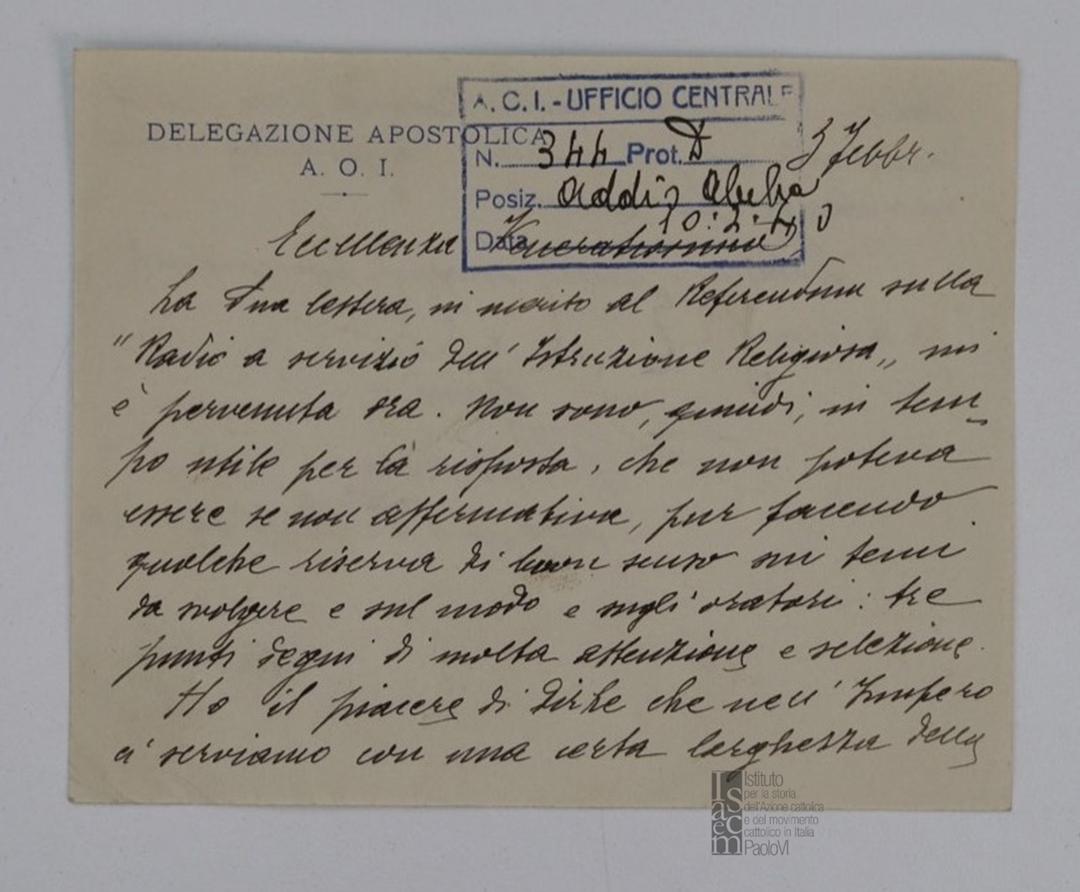 A. C. I. - UFFICIO CENTRALE
DELEGAZIONE APOSTOLICA
A. O. I.
N. 344 Prot. D
3 Febbr.
Posiz. Addis Abeba
Data 10.2.40
Eccellenza Veneratissima
La Sua lettera, in merito al Referendum sulla
"Radio a servizio dell'Istruzione Religiosa„ mi
è pervenuta ora. Non sono, quindi, in tem-
po utile per la risposta, che non poteva
essere se non affermativa, pur facendo
qualche riserva di buon senso sui temi
da svolgere e sul modo e sugli oratori: tre
punti degni di molta attenzione e selezione.
Ho il piacere di dirLe che nell'Impero
ci serviamo con una certa larghezza della
Istituto
per la storia
dell'Azione cattolica
e del movimento
cattolico in Italia
PaoloVI
Isacem